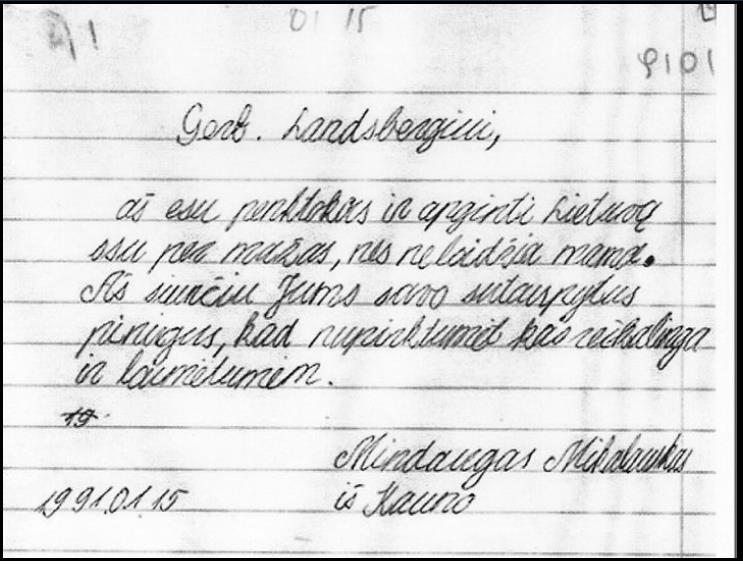 01 15
Gerb. Landsbergiui,
aš esu penktokas ir apginti Lietuvą
esu per mažas, nes neleidžia mama.
Aš siunčiu Jums savo sutaupytus
pinigus, kad nupirktumėt kas reikalinga
ir laimėtumėm.
19
Mindaugas Mikalauskas
1991.01.15 iš Kauno